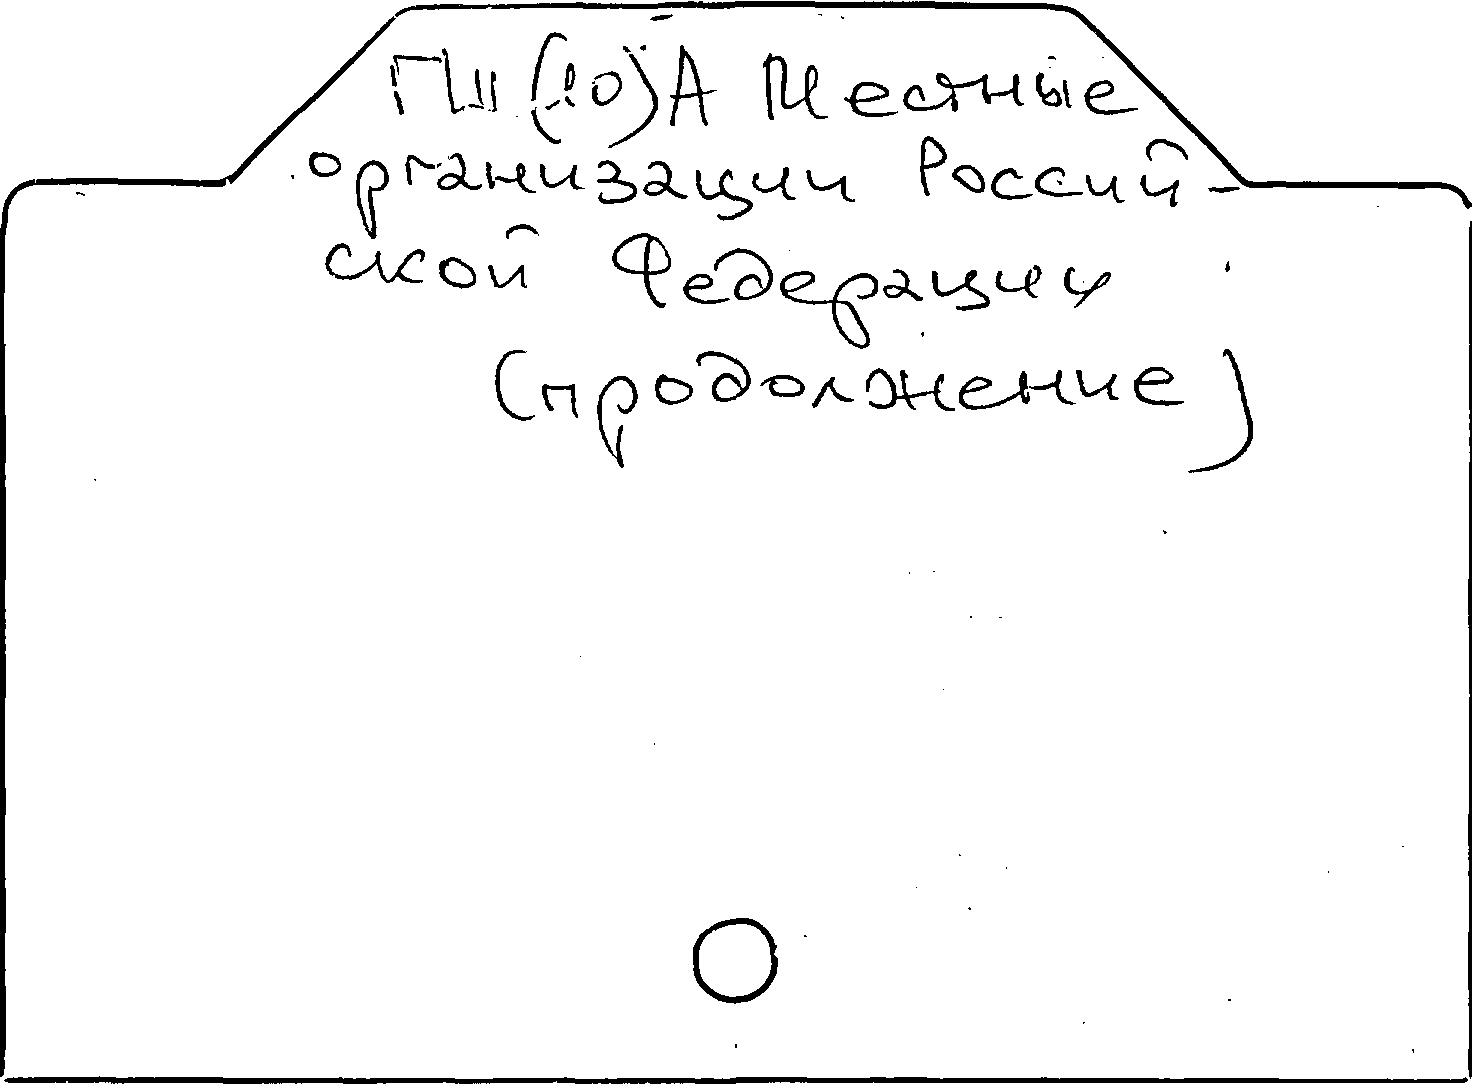 ГШ(10)А Местные
организации Россий-
ской Федерации
(продолжение)